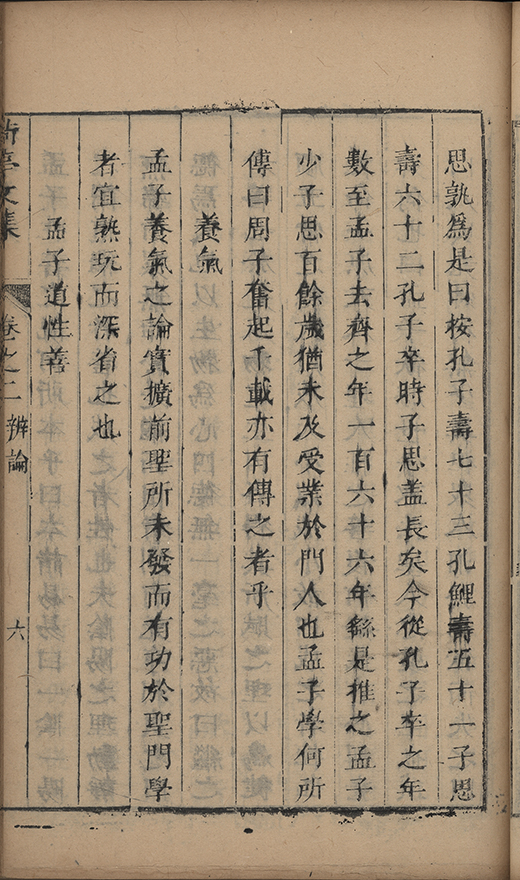 思孰爲是曰按孔子壽七十三孔鯉壽五十一子思
壽六十二孔子卒時子思盖長矣今從孔子卒之年
數至孟子去齊之年一百六十六年繇是推之孟子
少子思百餘歲猶未及受業於門人也孟子學何所
傳曰周子奮起千載亦有傳之者乎
養氣
孟子養氣之論實擴前聖所未發而有功於聖門學
者宜熟玩而深省之也
孟子道性善
文集
卷之二
辨論
六